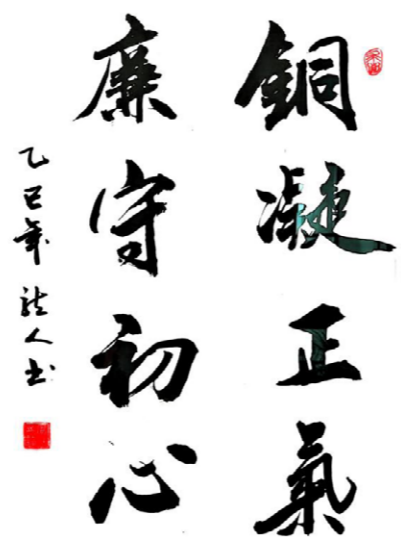 銅凝正氣
廉守初心
乙巳年 龍人書